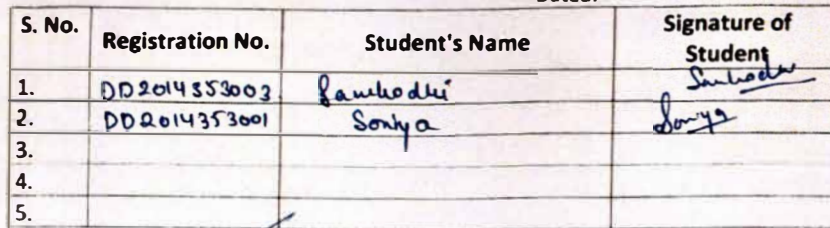 S. No. Registration No. Student's Name Signature of Student
1. DD2014353003 Sambodhi Sambodhi
2. DD2014353001 Soniya Soniya
3.
4.
5.